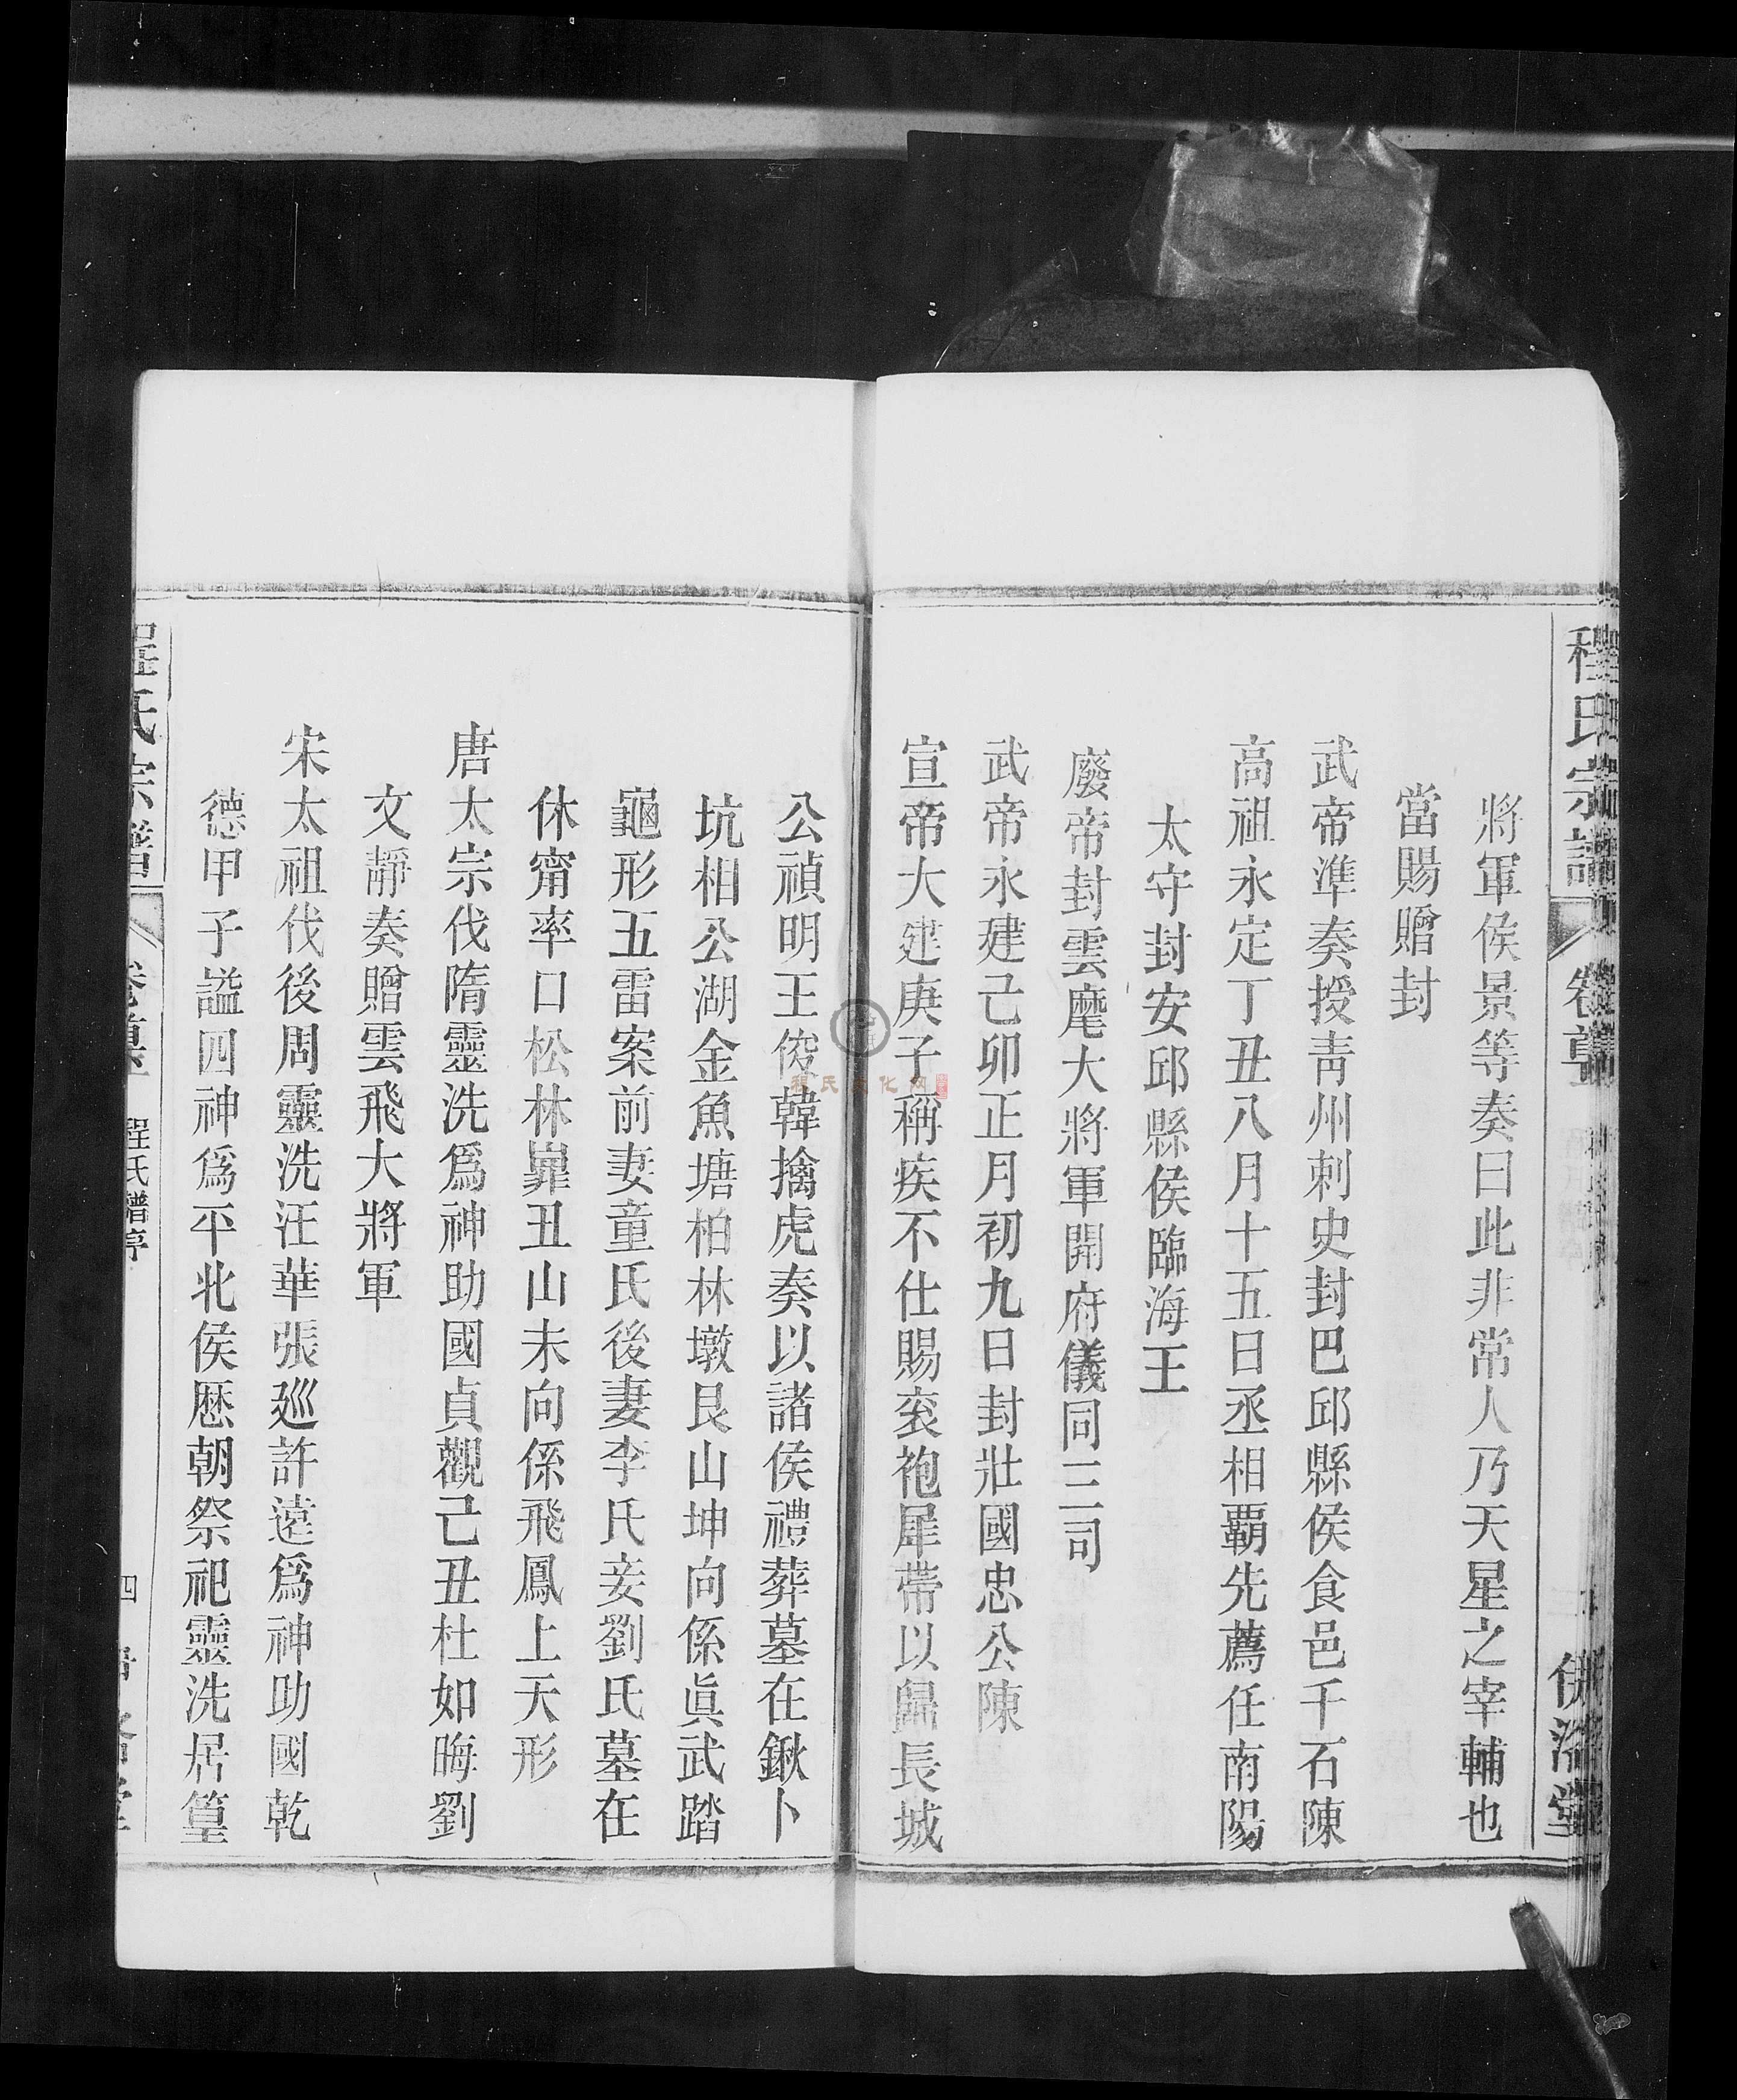 程氏宗譜
卷首
將軍侯景等奏曰此非常人乃天星之宰輔也
當賜贈封
武帝準奏授靑州刺史封巴邱縣侯食邑千石陳
高祖永定丁丑八月十五日丞相覇先薦任南陽
太守封安邱縣侯臨海王
廢帝封雲麾大將軍開府儀同三司
武帝永建己卯正月初九日封壯國忠公陳
宣帝大建庚子稱疾不仕賜衮袍犀帶以歸長城
公禎明王俊韓擒虎奏以諸侯禮葬墓在鍬卜
坑相公湖金魚塘柏林墩艮山坤向係眞武踏
龜形五雷案前妻童氏後妻李氏妾劉氏墓在
休甯率口松林嶵丑山未向係飛鳳上天形
唐太宗伐隋靈洗爲神助國貞觀己丑杜如晦劉
文靜奏贈雲飛大將軍
宋太祖伐後周靈洗汪華張廵許遠爲神助國乾
德甲子謚四神爲平北侯歷朝祭祀靈洗居篁
程氏宗譜
卷首
程氏譜序
四
程氏文化网